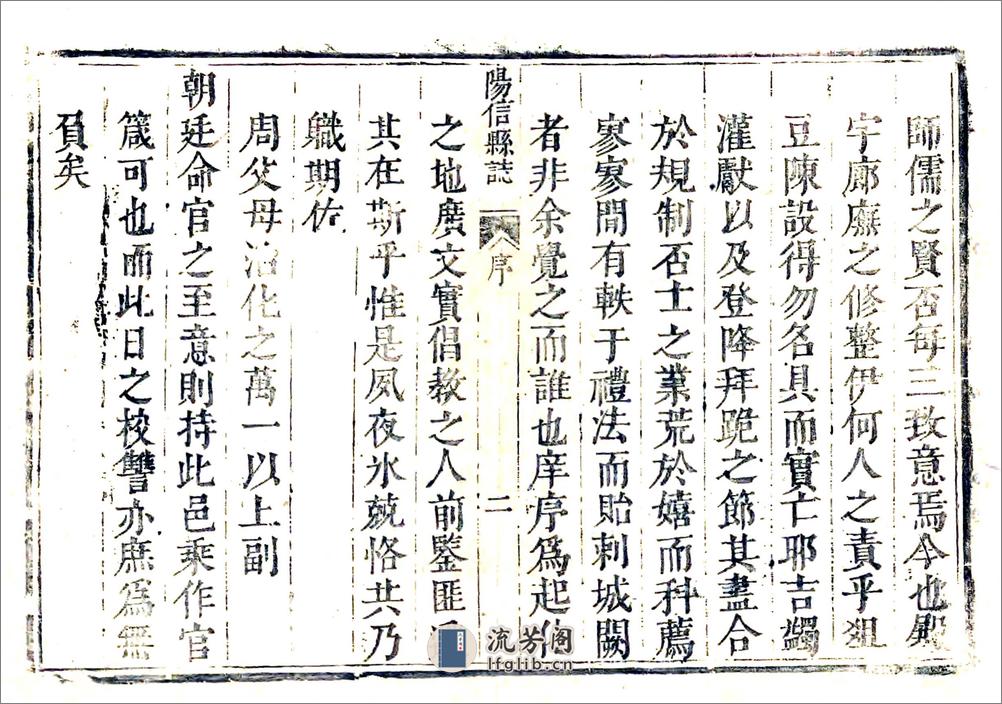 師儒之賢否每三致意焉今也殿
宇廊廡之修整伊何人之責乎俎
豆陳設得勿名具而實亡耶吉蠲
灌獻以及登降拜跪之節其盡合
於規制否士之業荒於嬉而科薦
寥寥間有軼于禮法而貽刺城闕
者非余覺之而誰也庠序爲起化
陽信縣誌 序 二
之地廣文實倡教之人前鑒匪遥
其在斯乎惟是夙夜氷兢恪共乃
職期佐
周父母治化之萬一以上副
朝廷命官之至意則持此邑乘作官
箴可也而此日之校讐亦庶爲無
負矣
流芳阁
lfglib.cn